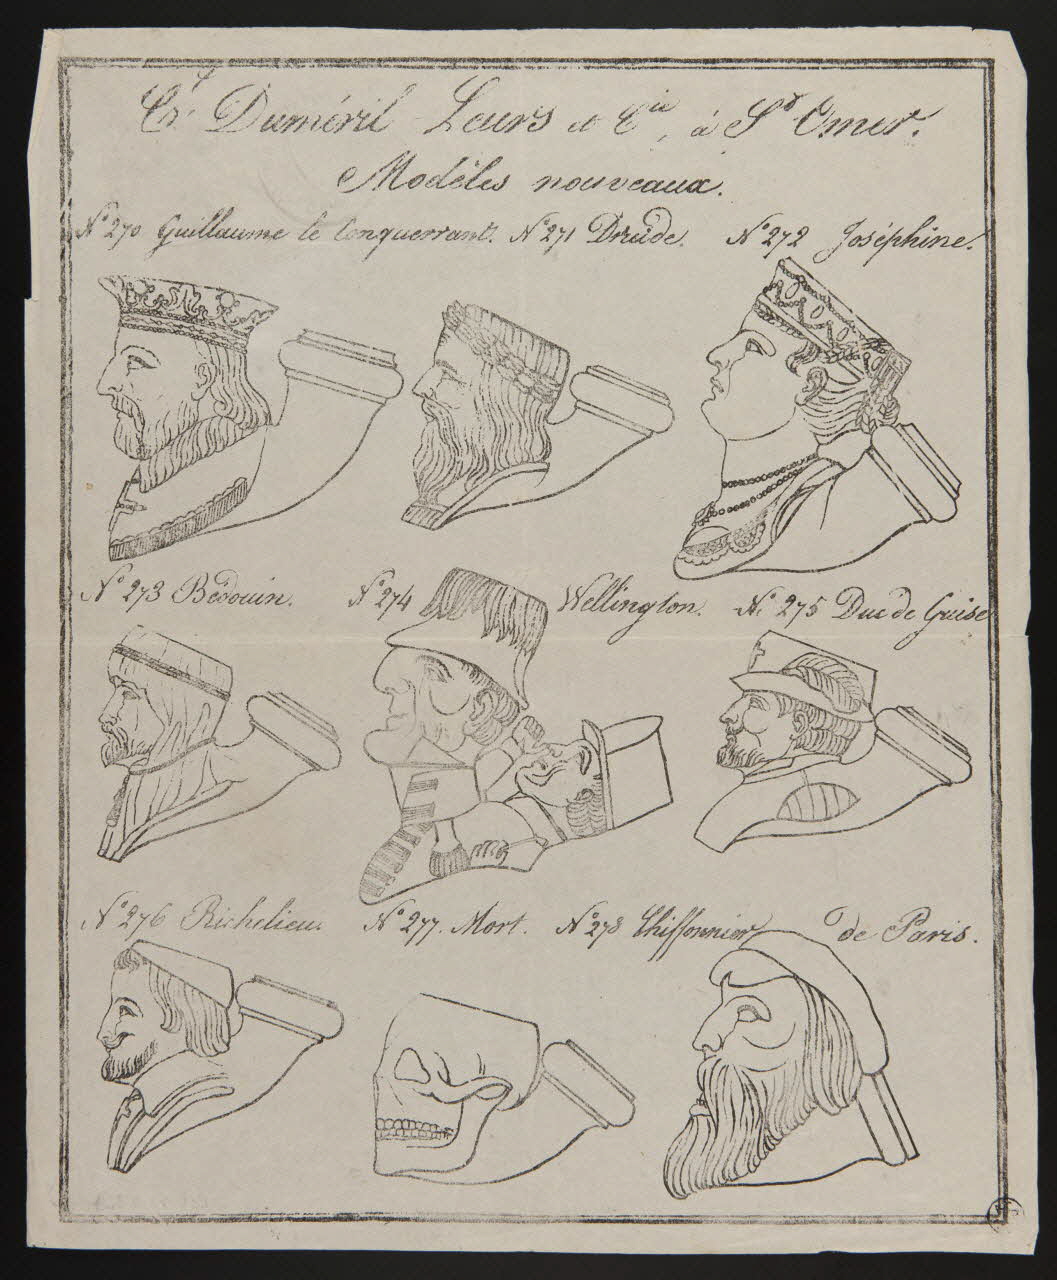 Ch. Duméril Leurs et Cie, à St Omer.
Modèles nouveaux.
No 270 Guillaume le Conquerrant. No 271 Druide. No 272 Joséphine.
No 273 Bédouin. No 274 Wellington. No 275 Duc de Guise
No 276 Richelieu. No 277. Mort. No 278 Chiffonnier de Paris.